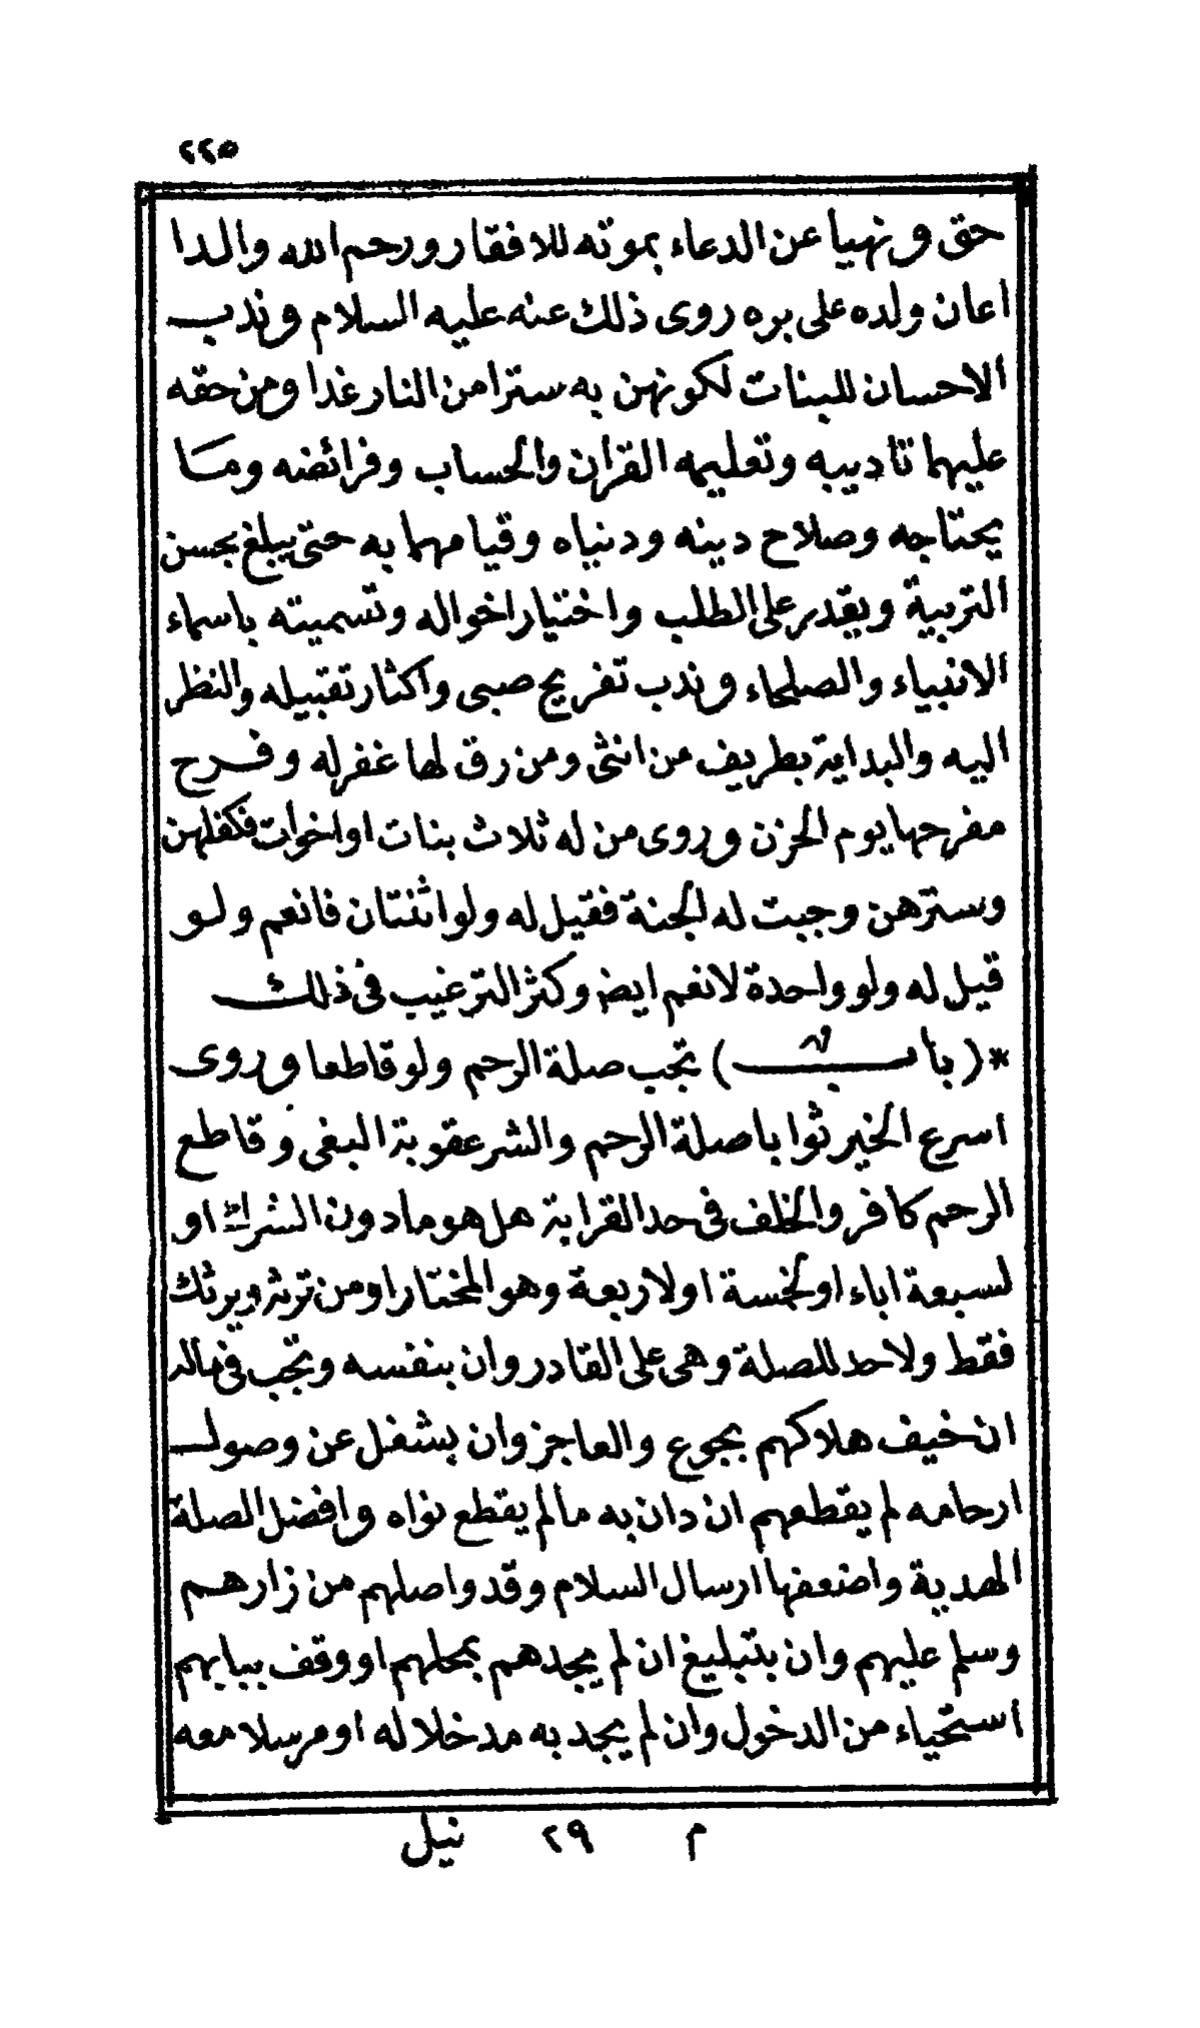 ٢٢٥
حق ونهيا عن الدعاء بموته للافقار ورحم الله والدا
اعان ولده على بره روى ذلك عنه عليه السلام وندب
الاحسان للبنات لكونهن به سترا من النار غدا ومن حقه
عليهما تاديبه وتعليمه القران والحساب وفرائضه وما
يحتاجه وصلاح دينه ودنياه وقيامهما به حتى يبلغ بحسن
التربية ويقدر على الطلب واختيار اخواله وتسميته باسماء
الانبياء والصلحاء وندب تفريح صبى واكثار تقبيله والنظر
اليه والبداية بطريف من انثى ومن رق لها غفر له وفرح
مفرحها يوم الحزن وروى من له ثلاث بنات او اخوات فكفلهن
وسترهن وجبت له الجنة فقيل له ولو اثنتان فانعم ولو
قيل له ولو واحدة لانعم ايض وكثر الترغيب فى ذلك
*( باب ) تجب صلة الرحم ولو قاطعا وروى
اسرع الخير ثوابا صلة الرحم والشر عقوبة البغى وقاطع
الرحم كافر والخلف فى حد القرابة هل هو ما دون الشرك او
لسبعة اباء او لخمسة او لاربعة وهو المختار او من ترثه ويرثك
فقط ولاحد للصلة وهى على القادر وان بنفسه وتجب فى ماله
ان خيف هلاكهم بجوع والعاجز وان بشغل عن وصول
ارحامه لم يقطعهم ان دان به مالم يقطع نواه وافضل الصلة
الهدية واضعفها ارسال السلام وقد واصلهم من زارهم
وسلم عليهم وان بتبليغ ان لم يجدهم بمحلهم او وقف ببابهم
استحياء من الدخول وان لم يجد به مدخلا له او مرسلا معه
م ٢٩ نيل